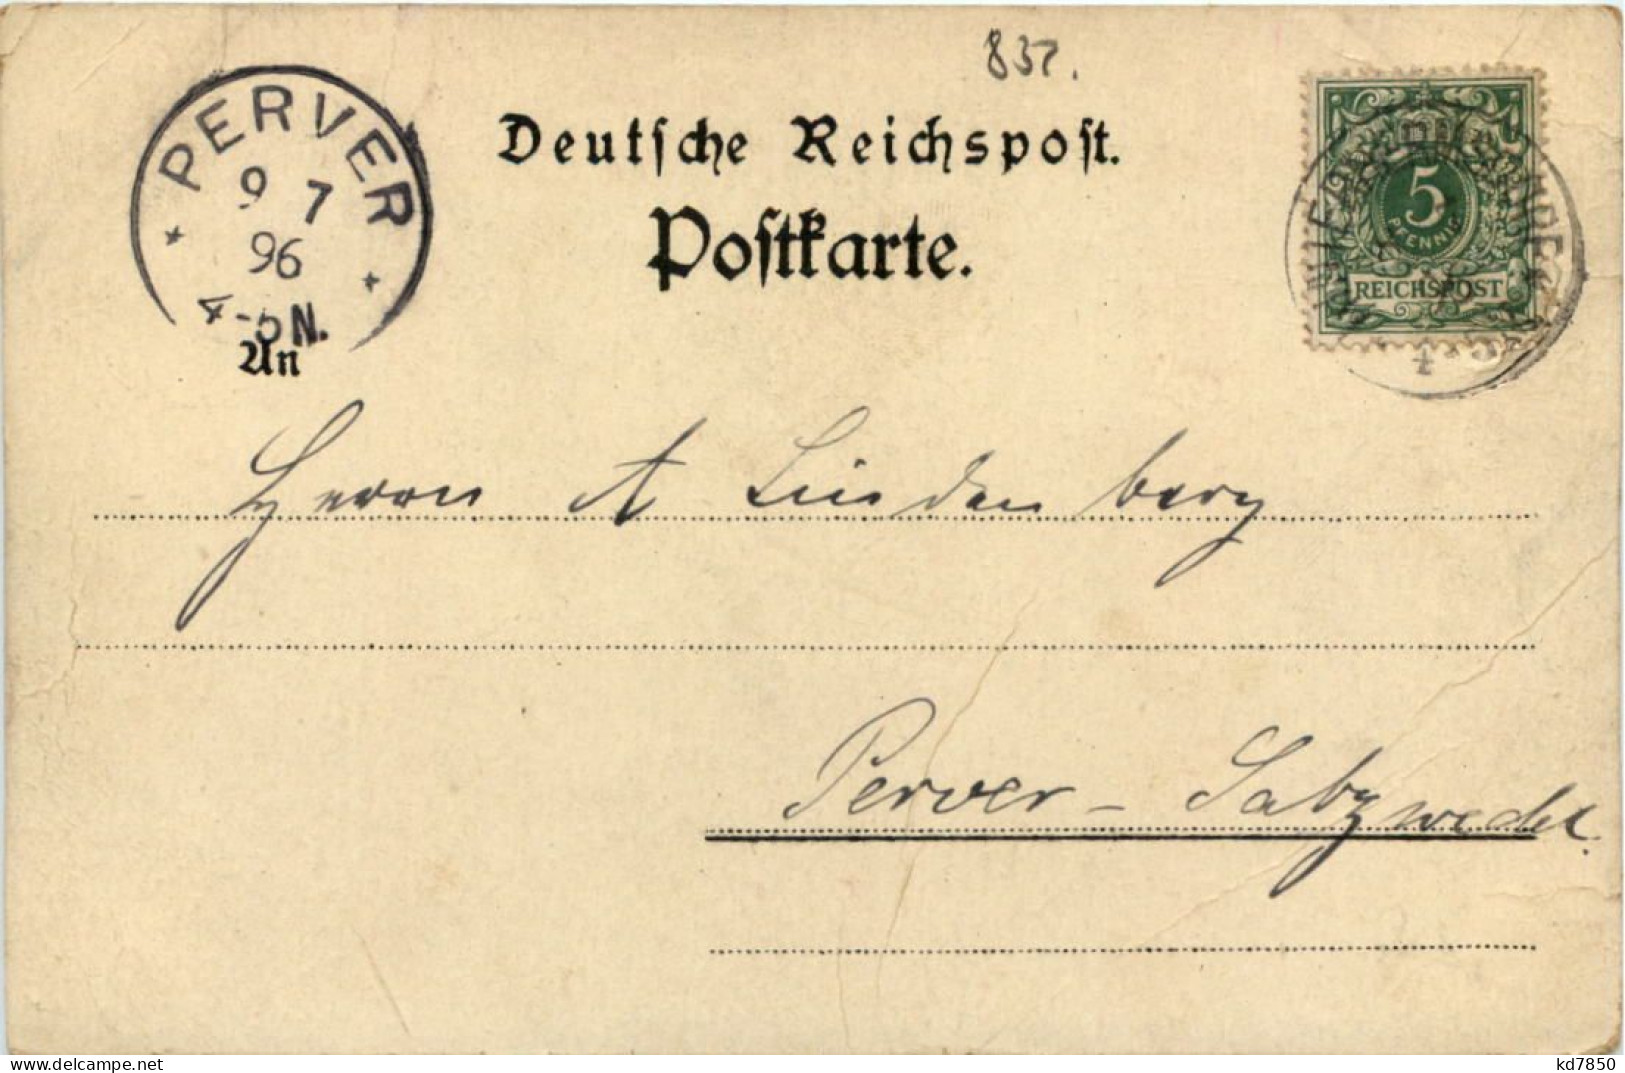 837.
PERVER
9 7
96
4-5 N.
Deutsche Reichspost.
Postkarte.
5
PFENNIG
REICHSPOST
An
Herrn A Lindenberg
Perver - Salzwedel.
kd7850